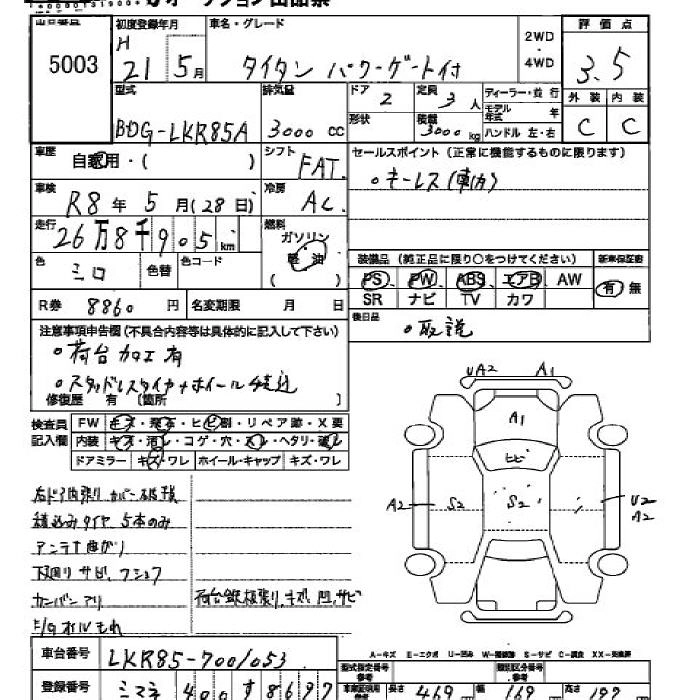 5003
初度登録年月
H 21 5月
車名・グレード
タイタン パワーゲート付
2WD
・
4WD
評 価 点
3.5
外 装 内 装
C C
型式
BDG-LKR85A
排気量
3000 CC
ドア 2
定員 3人
ディーラー・並 行
モデル年式 年
形状
積載 3000 kg
ハンドル 左・右
車歴
自家用・( )
シフト
FAT.
セールスポイント (正常に機能するものに限ります)
。キーレス(東カ)
車検
R8 年 5 月(28 日)
冷房
AC.
走行
26万8千905 km
燃料
ガソリン
軽 油
( )
色
シロ
色替
色コード
装備品 (純正品に限り○をつけてください)
新車保証書
PS PW ABS エアB AW
SR ナビ TV カワ
有 無
R券 8860 円
名変期限 月 日
後日品
。取説
注意事項申告欄(不具合内容等は具体的に記入して下さい)
。荷台加工有
。スタッドレスタイヤ+ホイール積込
修復歴 有 〔箇所 〕
検査員
記入欄
FW キズ・飛石・ヒビ割・リペア跡・X要
内装 キズ・汚レ・コゲ・穴・スレ・ヘタリ・破レ
ドアミラー キズ・ワレ ホイール・キャップ キズ・ワレ
右ドア内張り カバー破損
積込みタイヤ 5本のみ
アンテナ曲がり
下廻り サビ、フショク
カンバン アリ
荷台鉄板張り、キズ、凹、サビ
UA2
A1
A1
ヒビ
A2
S2
S2
U2
A2
A-キズ E-エクボ U-凹み W-補修跡 S-サビ C-腐食 XX-交換歴
車台番号
LKR85-7001053
型式指定番号
参考
類別区分番号
参考
登録番号
シマネ 400 す 8697
長さ 469
幅 169
高さ